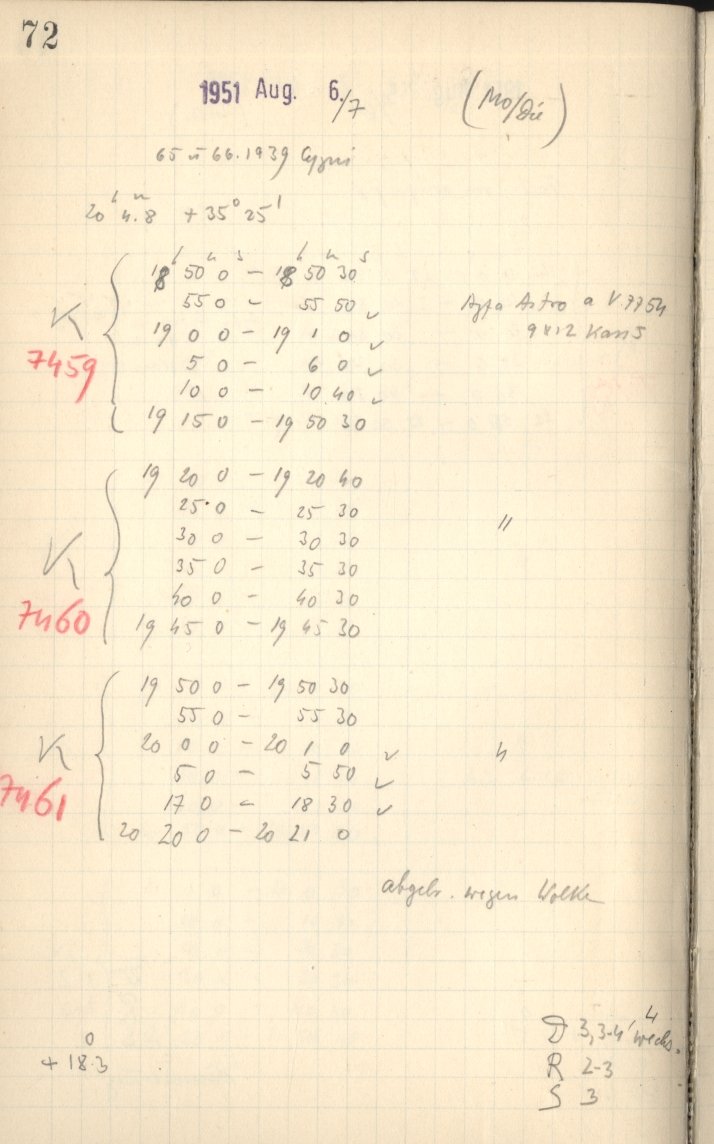 72
1951 Aug. 6./7 (Mo/Die)
65 u 66.1939 Cygni
20h 4m.8 + 35° 25'
h m s h m s
18 50 0 - 18 50 30
55 0 - 55 50 ✓
K 19 0 0 - 19 1 0 ✓
Agfa Astro a V.7754
9x12 Kass
7459
5 0 - 6 0 ✓
10 0 - 10 40 ✓
19 15 0 - 19 50 30
19 20 0 - 19 20 40
25 0 - 25 30
"
30 0 - 30 30
K
35 0 - 35 30
40 0 - 40 30
7460
19 45 0 - 19 45 30
19 50 0 - 19 50 30
55 0 - 55 30
K 20 0 0 - 20 1 0 ✓ "
5 0 - 5 50 ✓
7461
17 0 - 18 30 ✓
20 20 0 - 20 21 0
abgebr. wegen Wolken
D 3,3-4, 4 wechs.
+ 18°.3
R 2-3
S 3